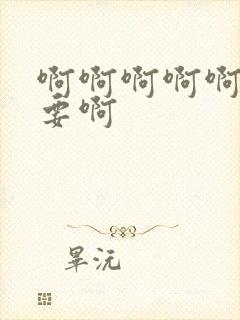 啊啊啊啊啊
要啊
畢沅